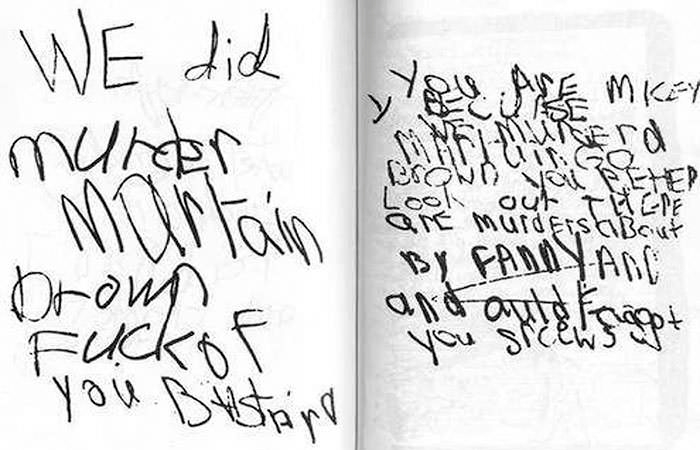 WE did
murder
martain
brown
Fuckof
you BAstArd
You ArE mICEY
y BECUrSE
WE murdErd
MArtain GO
Brown you BETEr
Look out THErE
arE murdErs aBout
By FANNY AND
and auld Faggot
you srcews